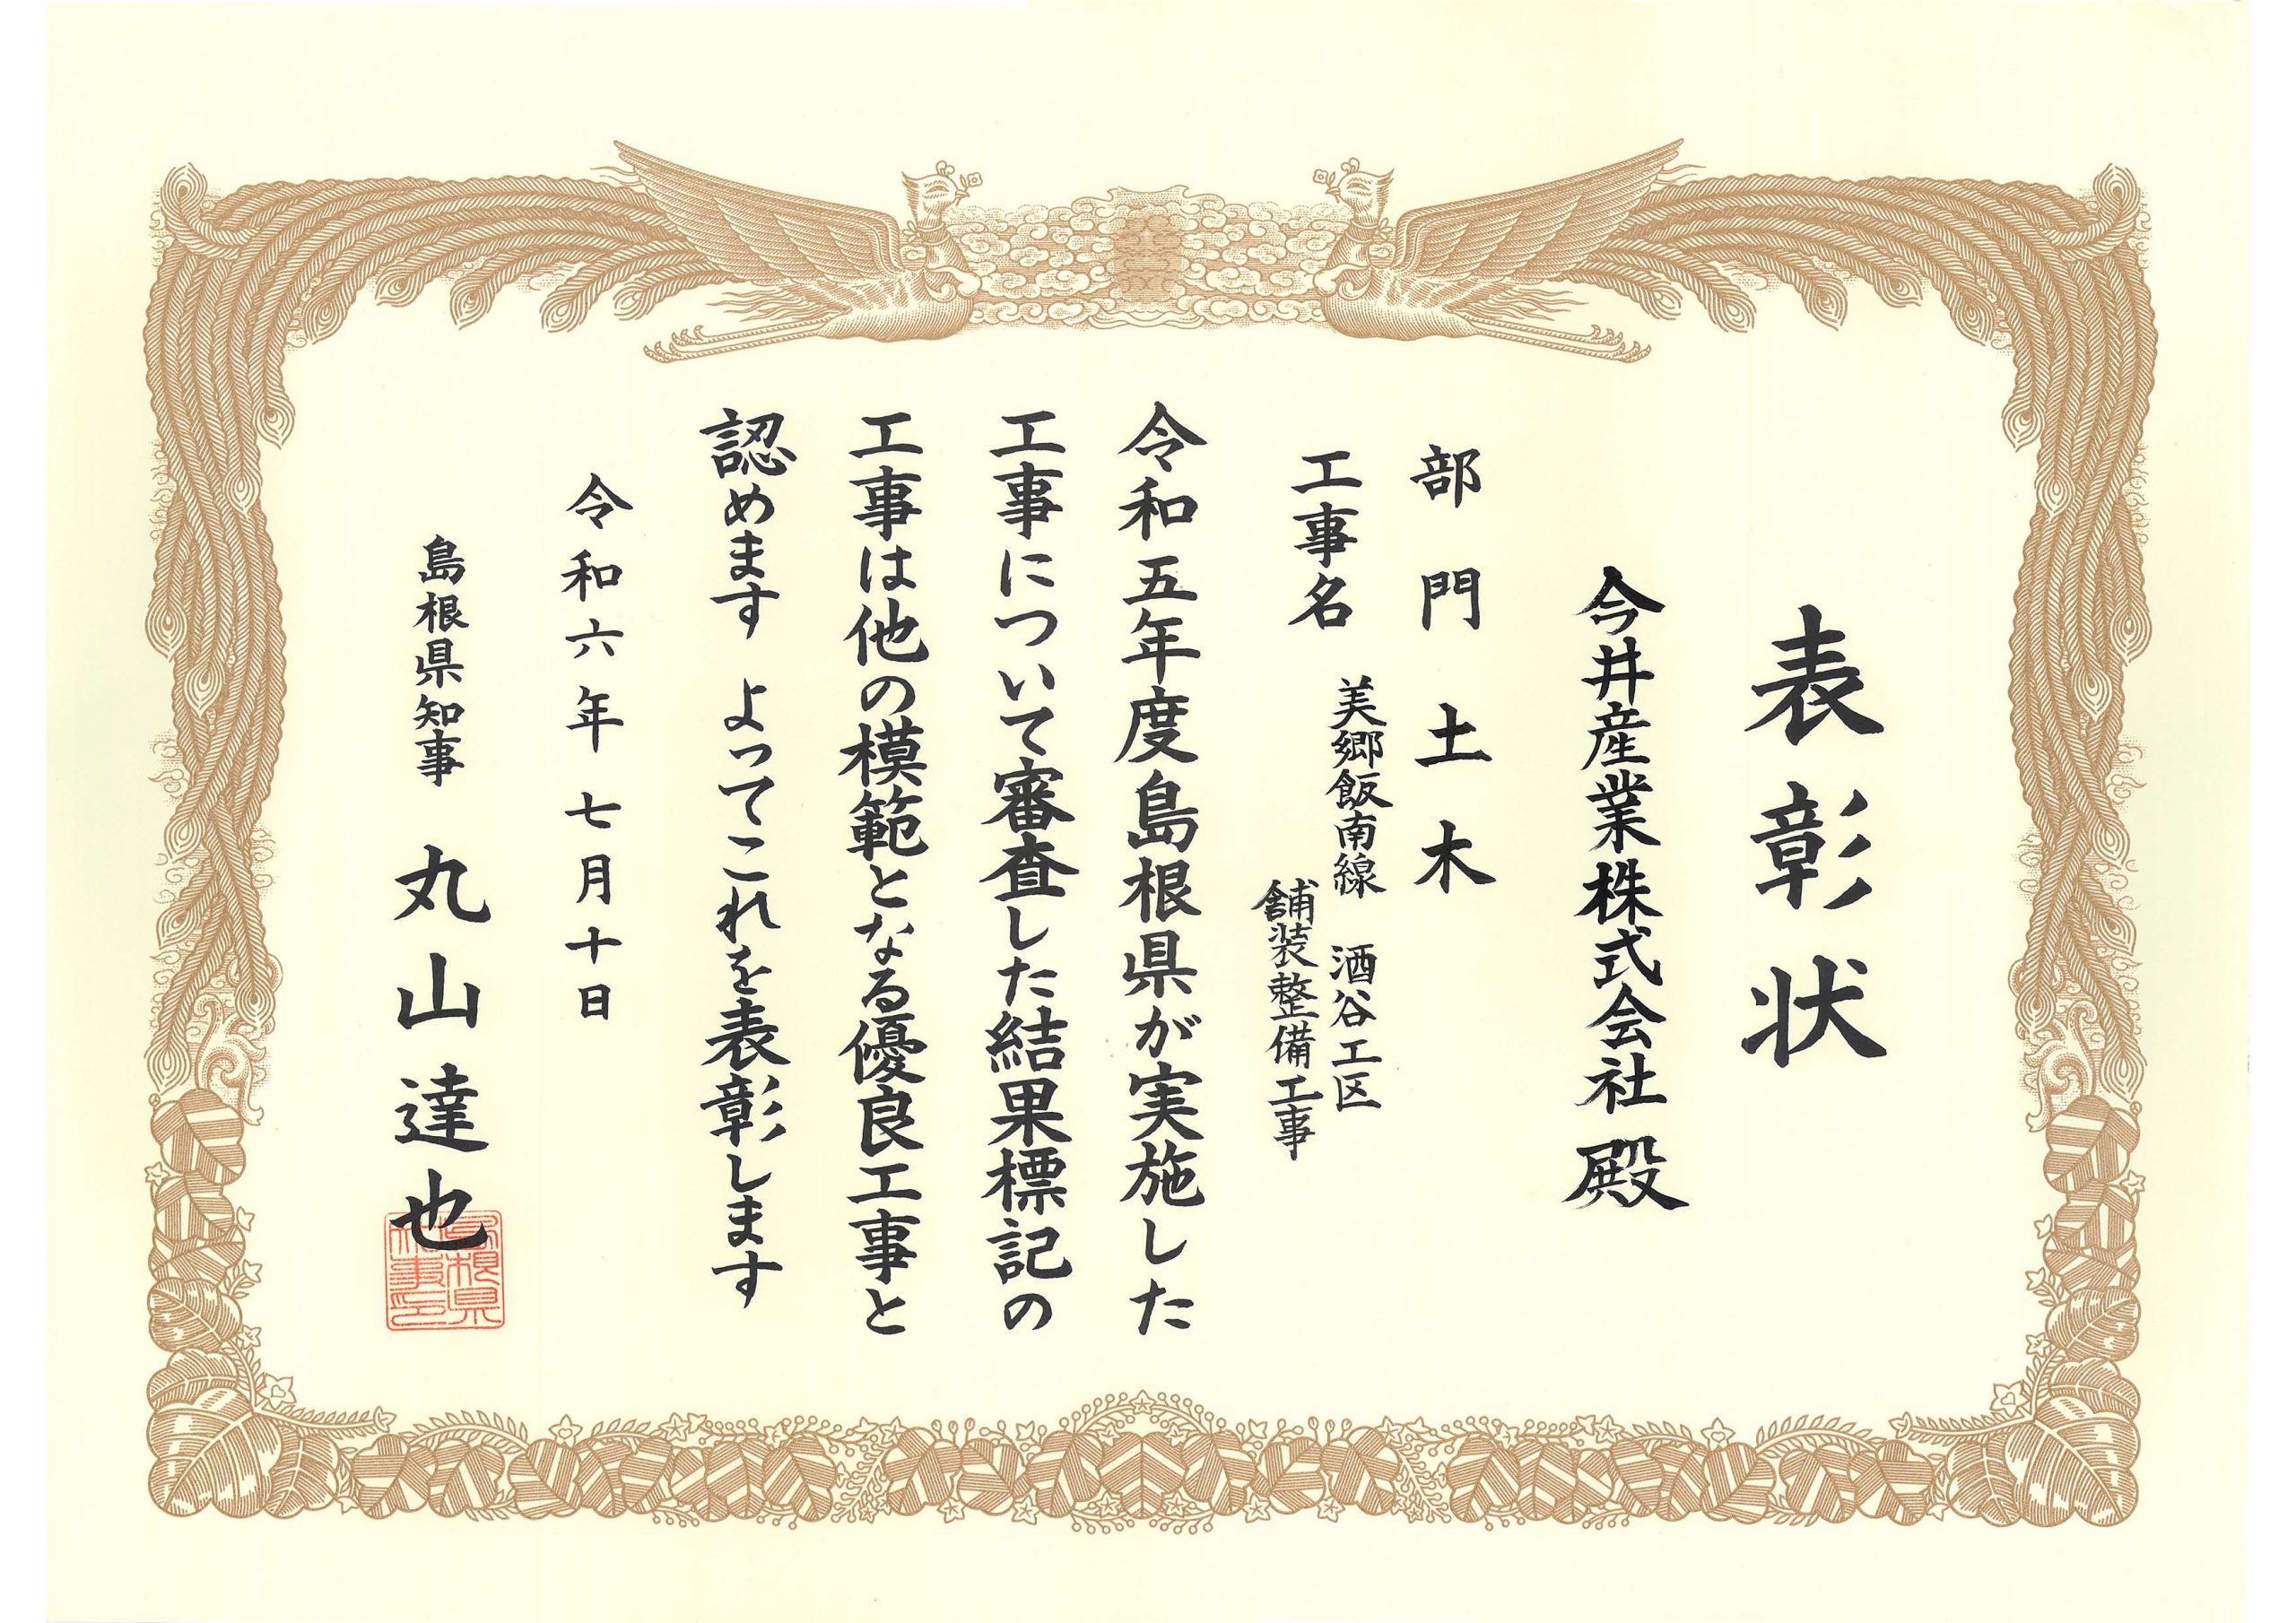 表彰状
今井産業株式会社 殿
部門 土木
工事名 美郷飯南線 酒谷工区
舗装整備工事
令和五年度島根県が実施した
工事について審査した結果標記の
工事は他の模範となる優良工事と
認めます よってこれを表彰します
令和六年七月十日
島根県知事 丸山達也
島根県
知事印